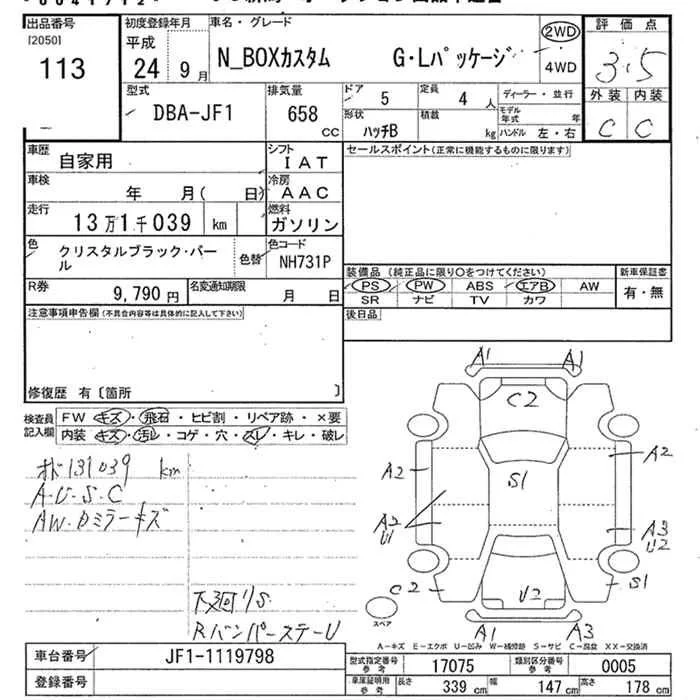 出品番号
[2050]
113
初度登録年月
平成
24年 9月
車名・グレード
N_BOXカスタム G・Lパッケージ
2WD
4WD
評価点
3.5
外装 内装
C C
型式
DBA-JF1
排気量
658 cc
ドア 5
定員 4 人
ディーラー・並行
モデル年式 年
形状 ハッチB
積載 kg
ハンドル 左・右
車歴 自家用
シフト IAT
セールスポイント(正常に機能するものに限ります)
車検 年 月( 日)
冷房 AAC
走行 13万1千039 km
燃料 ガソリン
色 クリスタルブラック・パール
色替
色コード NH731P
装備品(純正品に限り〇をつけてください)
新車保証書
PS PW ABS エアB AW
SR ナビ TV カワ
有・無
R券 9,790円
名変通知期限 月 日
後日品
注意事項申告欄(不具合内容等は具体的に記入して下さい)
修復歴 有〔箇所 〕
検査員記入欄
FW キズ・飛石・ヒビ割・リペア跡・×要
内装 キズ・汚レ・コゲ・穴・スレ・キレ・破レ
131039 km
A・U・S・C
AW・ドミラーキズ
下廻りS
RバンパーステーU
A1 A1
C2
A2 A2
S1
A2 U1
A3 U2
C2 S1
U2
A1 A3
スペア
A-キズ E-エクボ U-凹み W-補修跡 S-サビ C-腐食 XX-交換済
車台番号 JF1-1119798
登録番号
型式指定番号 参考 17075
類別区分番号 参考 0005
車庫証明用 参考 長さ 339 cm 幅 147 cm 高さ 178 cm